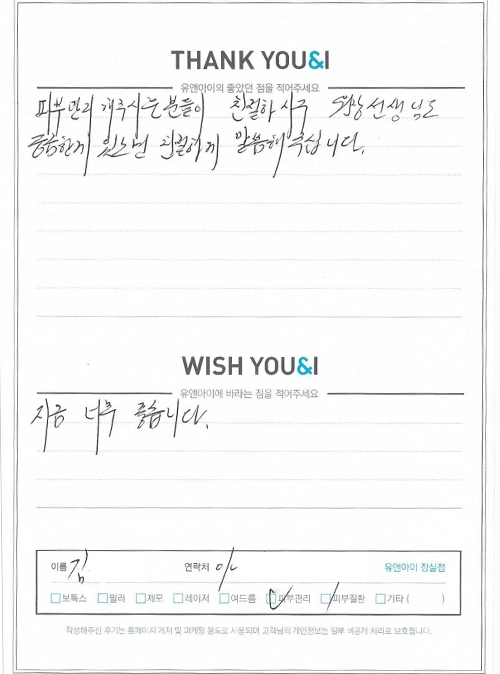 THANK YOU&I
유앤아이의 좋았던 점을 적어주세요
피부관리 해주시는 분들이 친절하시구 원장선생님도
궁금한게 있으면 친절하게 말씀해 주십니다.
WISH YOU&I
유앤아이에 바라는 점을 적어주세요
지금 너무 좋습니다.
이름 김 연락처 01 유앤아이 잠실점
보톡스 필러 제모 레이저 여드름 피부관리 피부질환 기타 ( )
작성해주신 후기는 홈페이지 게저 및 마케팅 용도로 사용되며 고객님의 개인정보는 일부 비공개 처리로 보호됩니다.